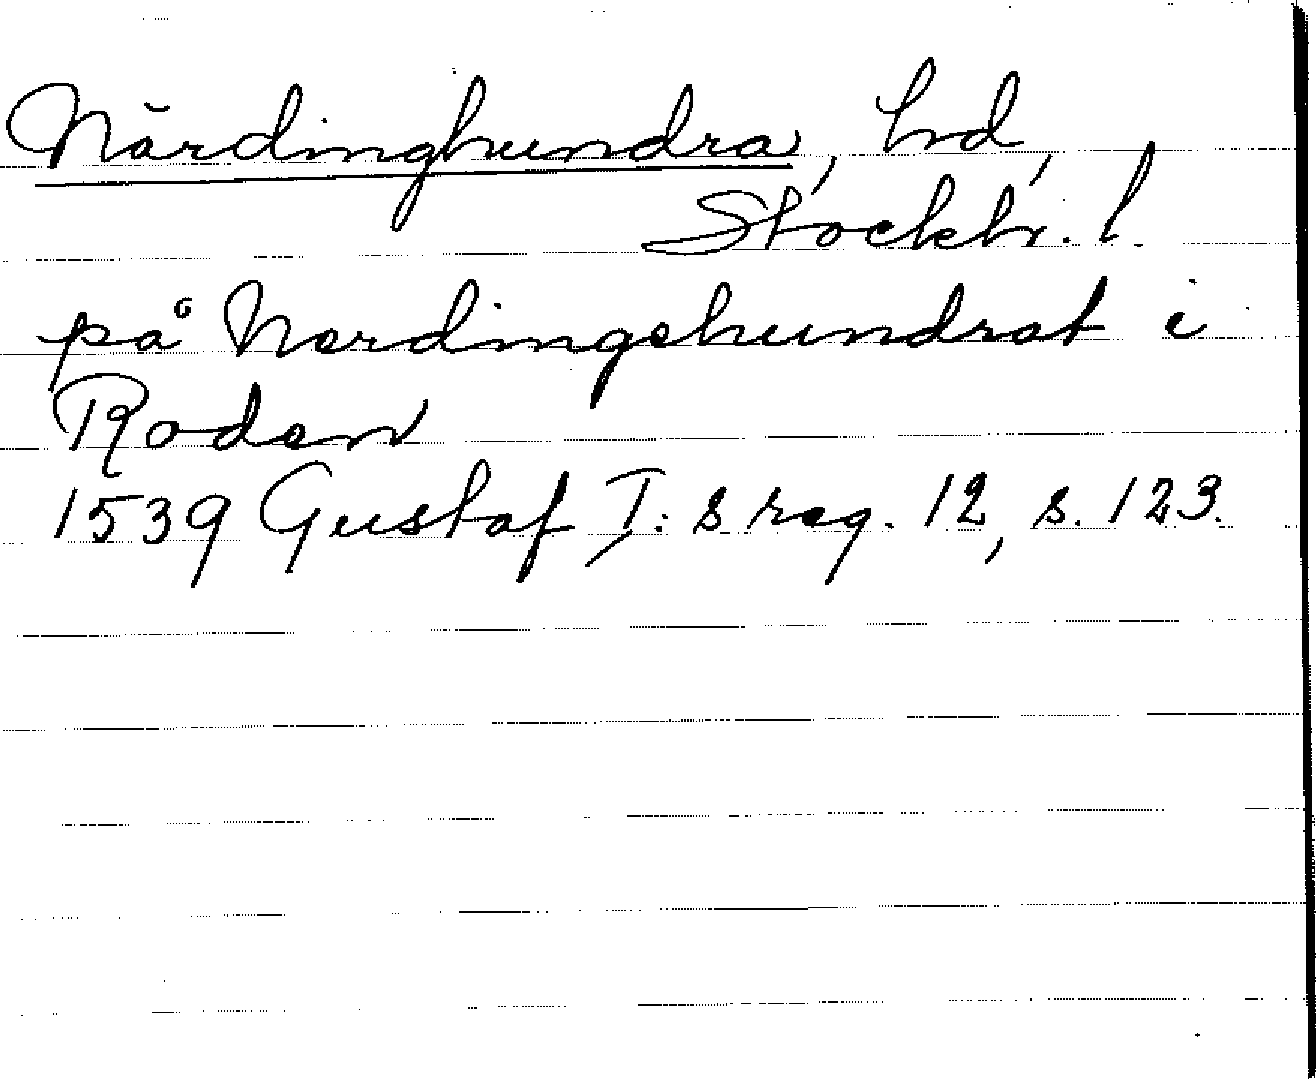 Närdinghundra, hd,
Stockh. l.
på Nerdingehundret i
Roden
1539 Gustaf I: s reg. 12, s. 123.